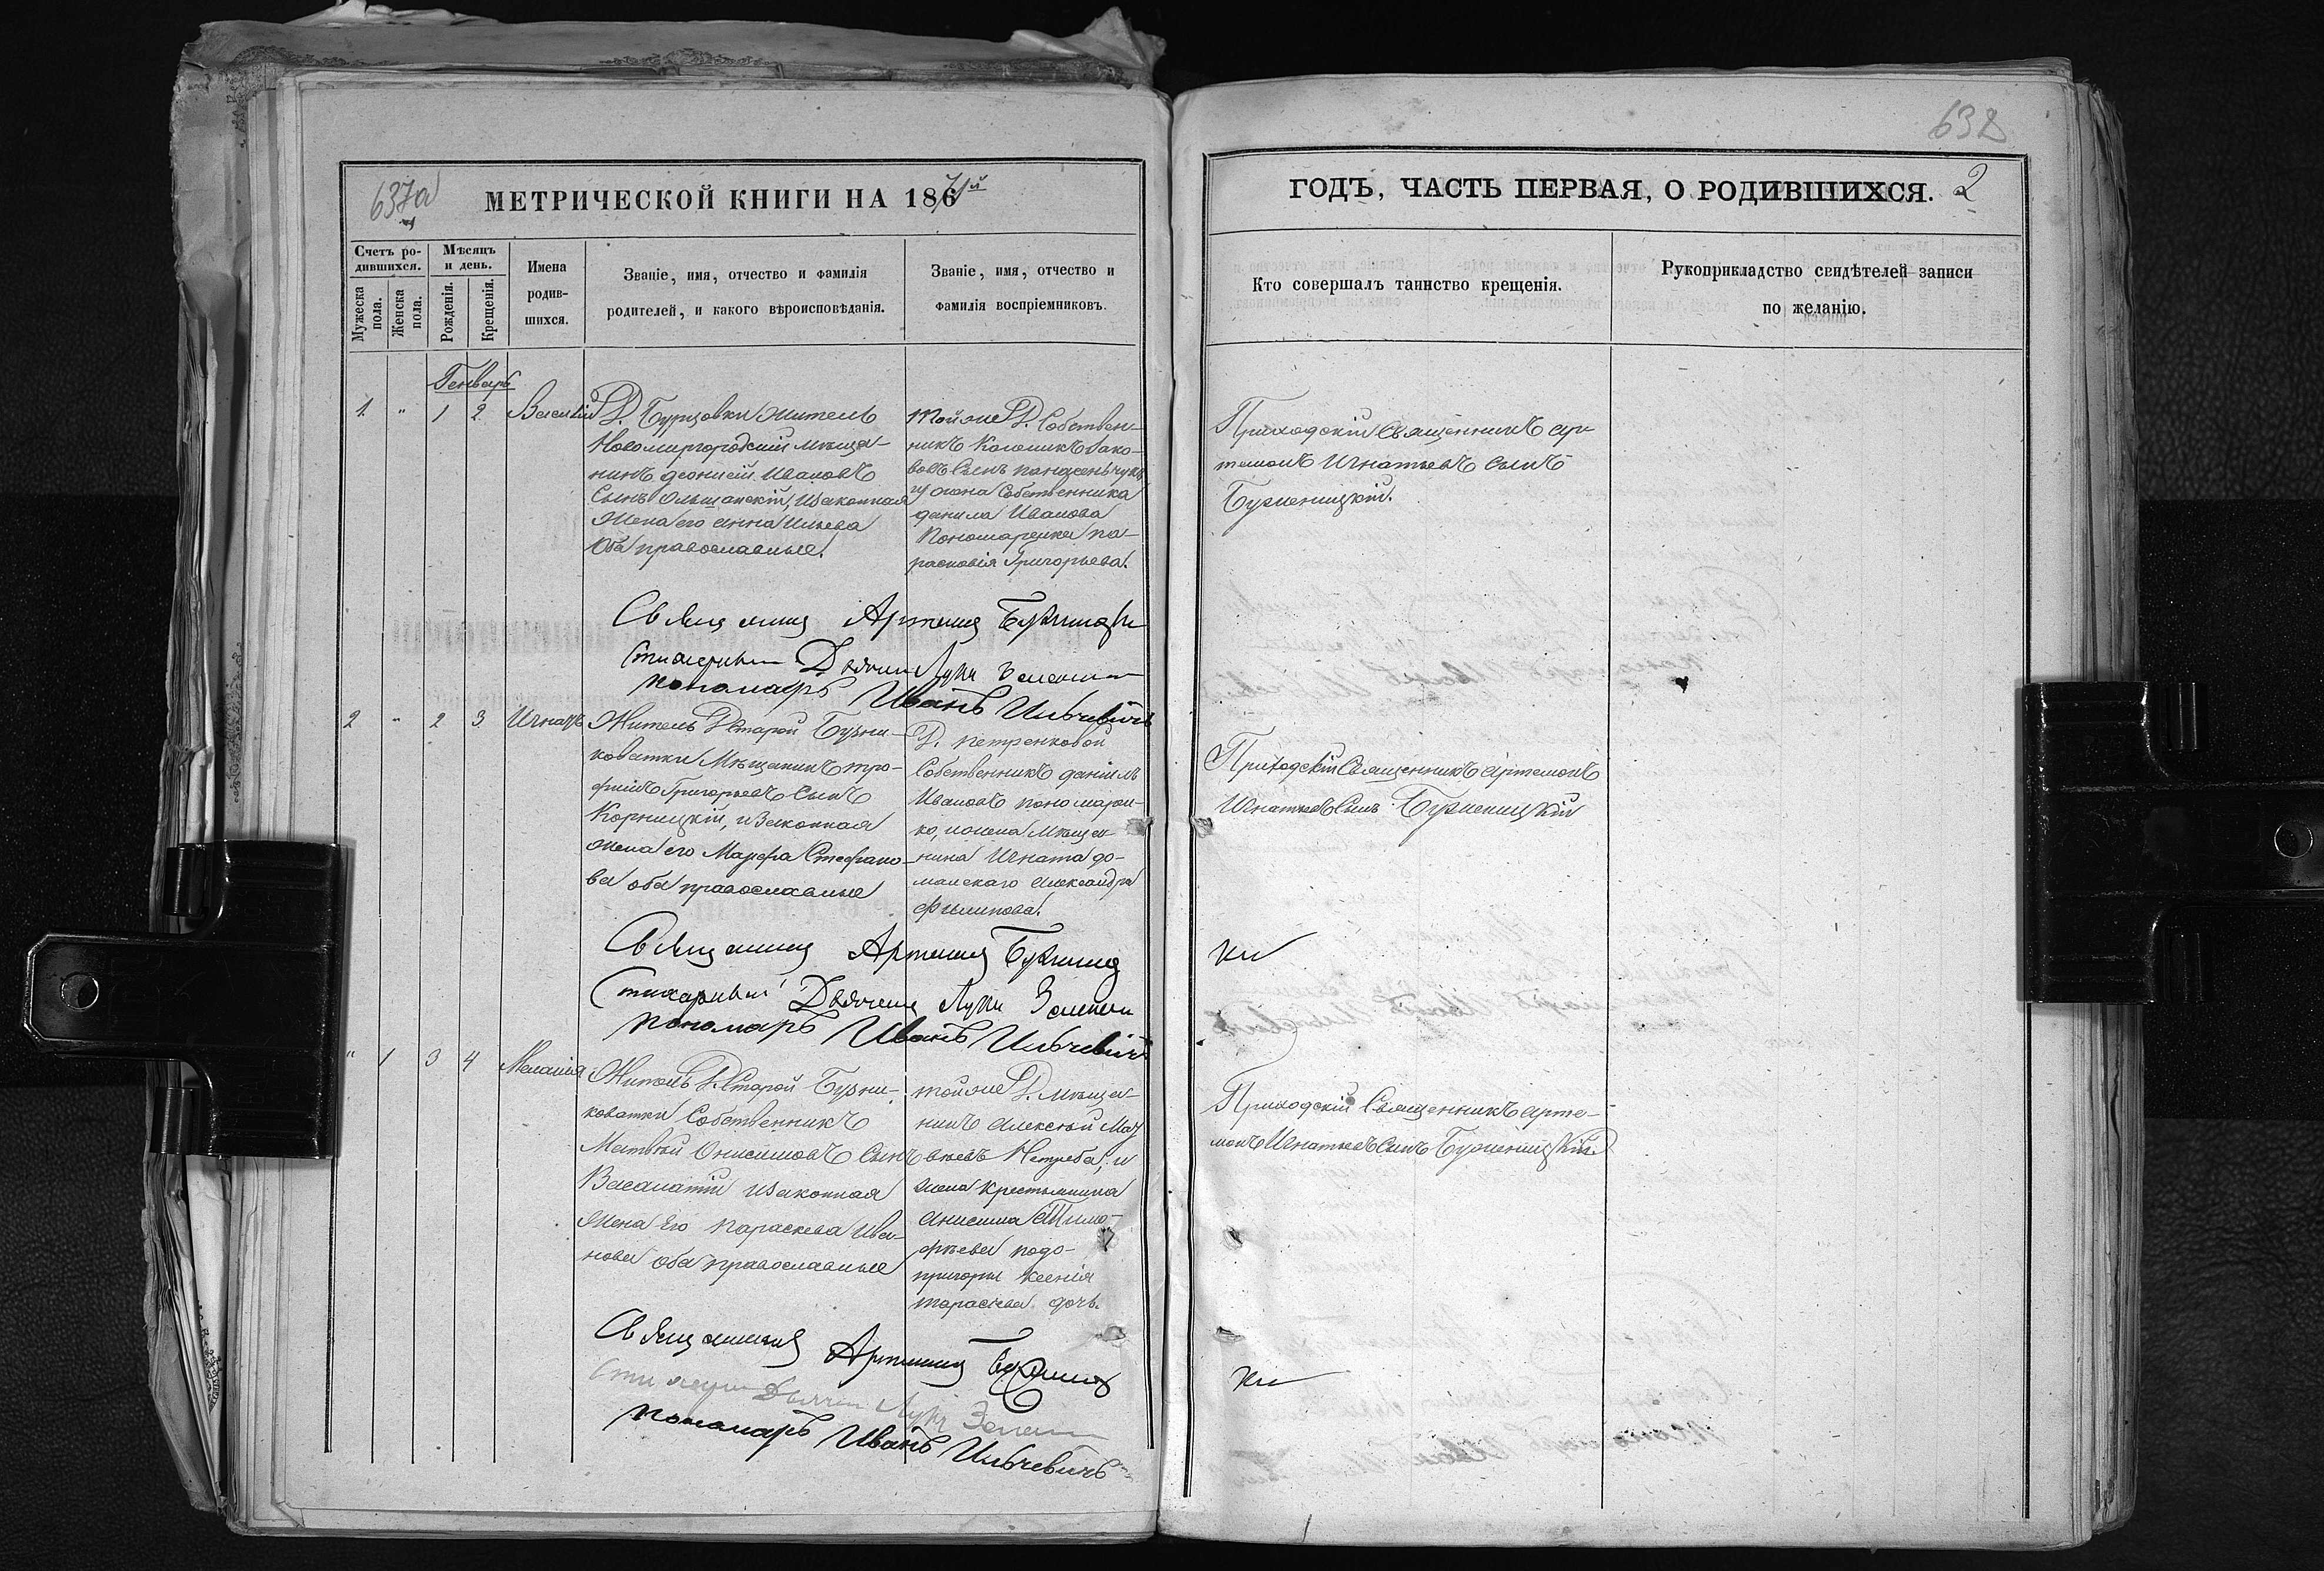 638
637а
МЕТРИЧЕСКОЙ КНИГИ НА 1871й
ГОДЪ, ЧАСТЬ ПЕРВАЯ, О РОДИВШИХСЯ. 2
Счетъ ро-
дившихся.
Мужеска
пола.
Женска
пола.
Мѣсяцъ
и день.
Рожденія.
Крещенія.
Имена
родив-
шихся.
Званіе, имя, отчество и фамилія
родителей, и какого вѣроисповѣданія.
Званіе, имя, отчество и
фамилія воспріемниковъ.
Кто совершалъ таинство крещенія.
Рукоприкладство свидѣтелей записи
по желанію.
Генварь
1. " 1 2 Василій
Д. Бурзовки житель
Новомиргородскій мѣща-
нинъ Деонисій Ивановъ
Сынъ Ольшанскій, И законная
жена его Анна Ильева
Оба православные.
той же Д. Собствен-
никъ Яко-
вовъ Сынъ
и жена Собственника
Данила Иванова
Пономаренка па-
расковія Григорьева.
Приходскій Священникъ Ар-
темонъ Игнатьевъ сынъ
Бурженицкій.
Священникъ Артемон
Стихарный Дьячекъ Лука
пономарь Иванъ Ильчевичъ
2 " 2 3 Игнатъ
Житель Д. Старой Бузни-
коватки Мѣщанинъ тро-
фимъ Григорьевъ Сынъ
Корницкій, и Законная
жена его Марфа Стефано-
ва оба православные
Д. Петренковой
Собственникъ Даніилъ
Ивановъ пономарен-
ко, и жена Мѣща-
нина Игната До-
манскаго Александра
Филипова.
Приходскій Священникъ Артемонъ
Игнатьевъ Сынъ Бурженицкій
Священникъ Артемон
Стихарный Дьячекъ Лука
пономарь Иванъ Ильчевичъ
" 1 3 4 Меланія
Житель Д. Старой Бузни-
коватки Собственникъ
Матвѣй Онисимовъ Сынъ
и законная
Жена Его Параскева Ива-
нова оба православные
той же Д. Мѣща-
нинъ Алексѣй Мат
вѣевъ Нетреба, и
жена крестьянина
Анисима Тимо-
фѣева подо-
пригоры Ксенія
тарасьева дочь.
Приходскій Священникъ Арте-
монъ Игнатьевъ Сынъ Бурженицкій.
Священникъ Артемон
Стихарный Дьячекъ Лука
пономарь Иванъ Ильчевичъ